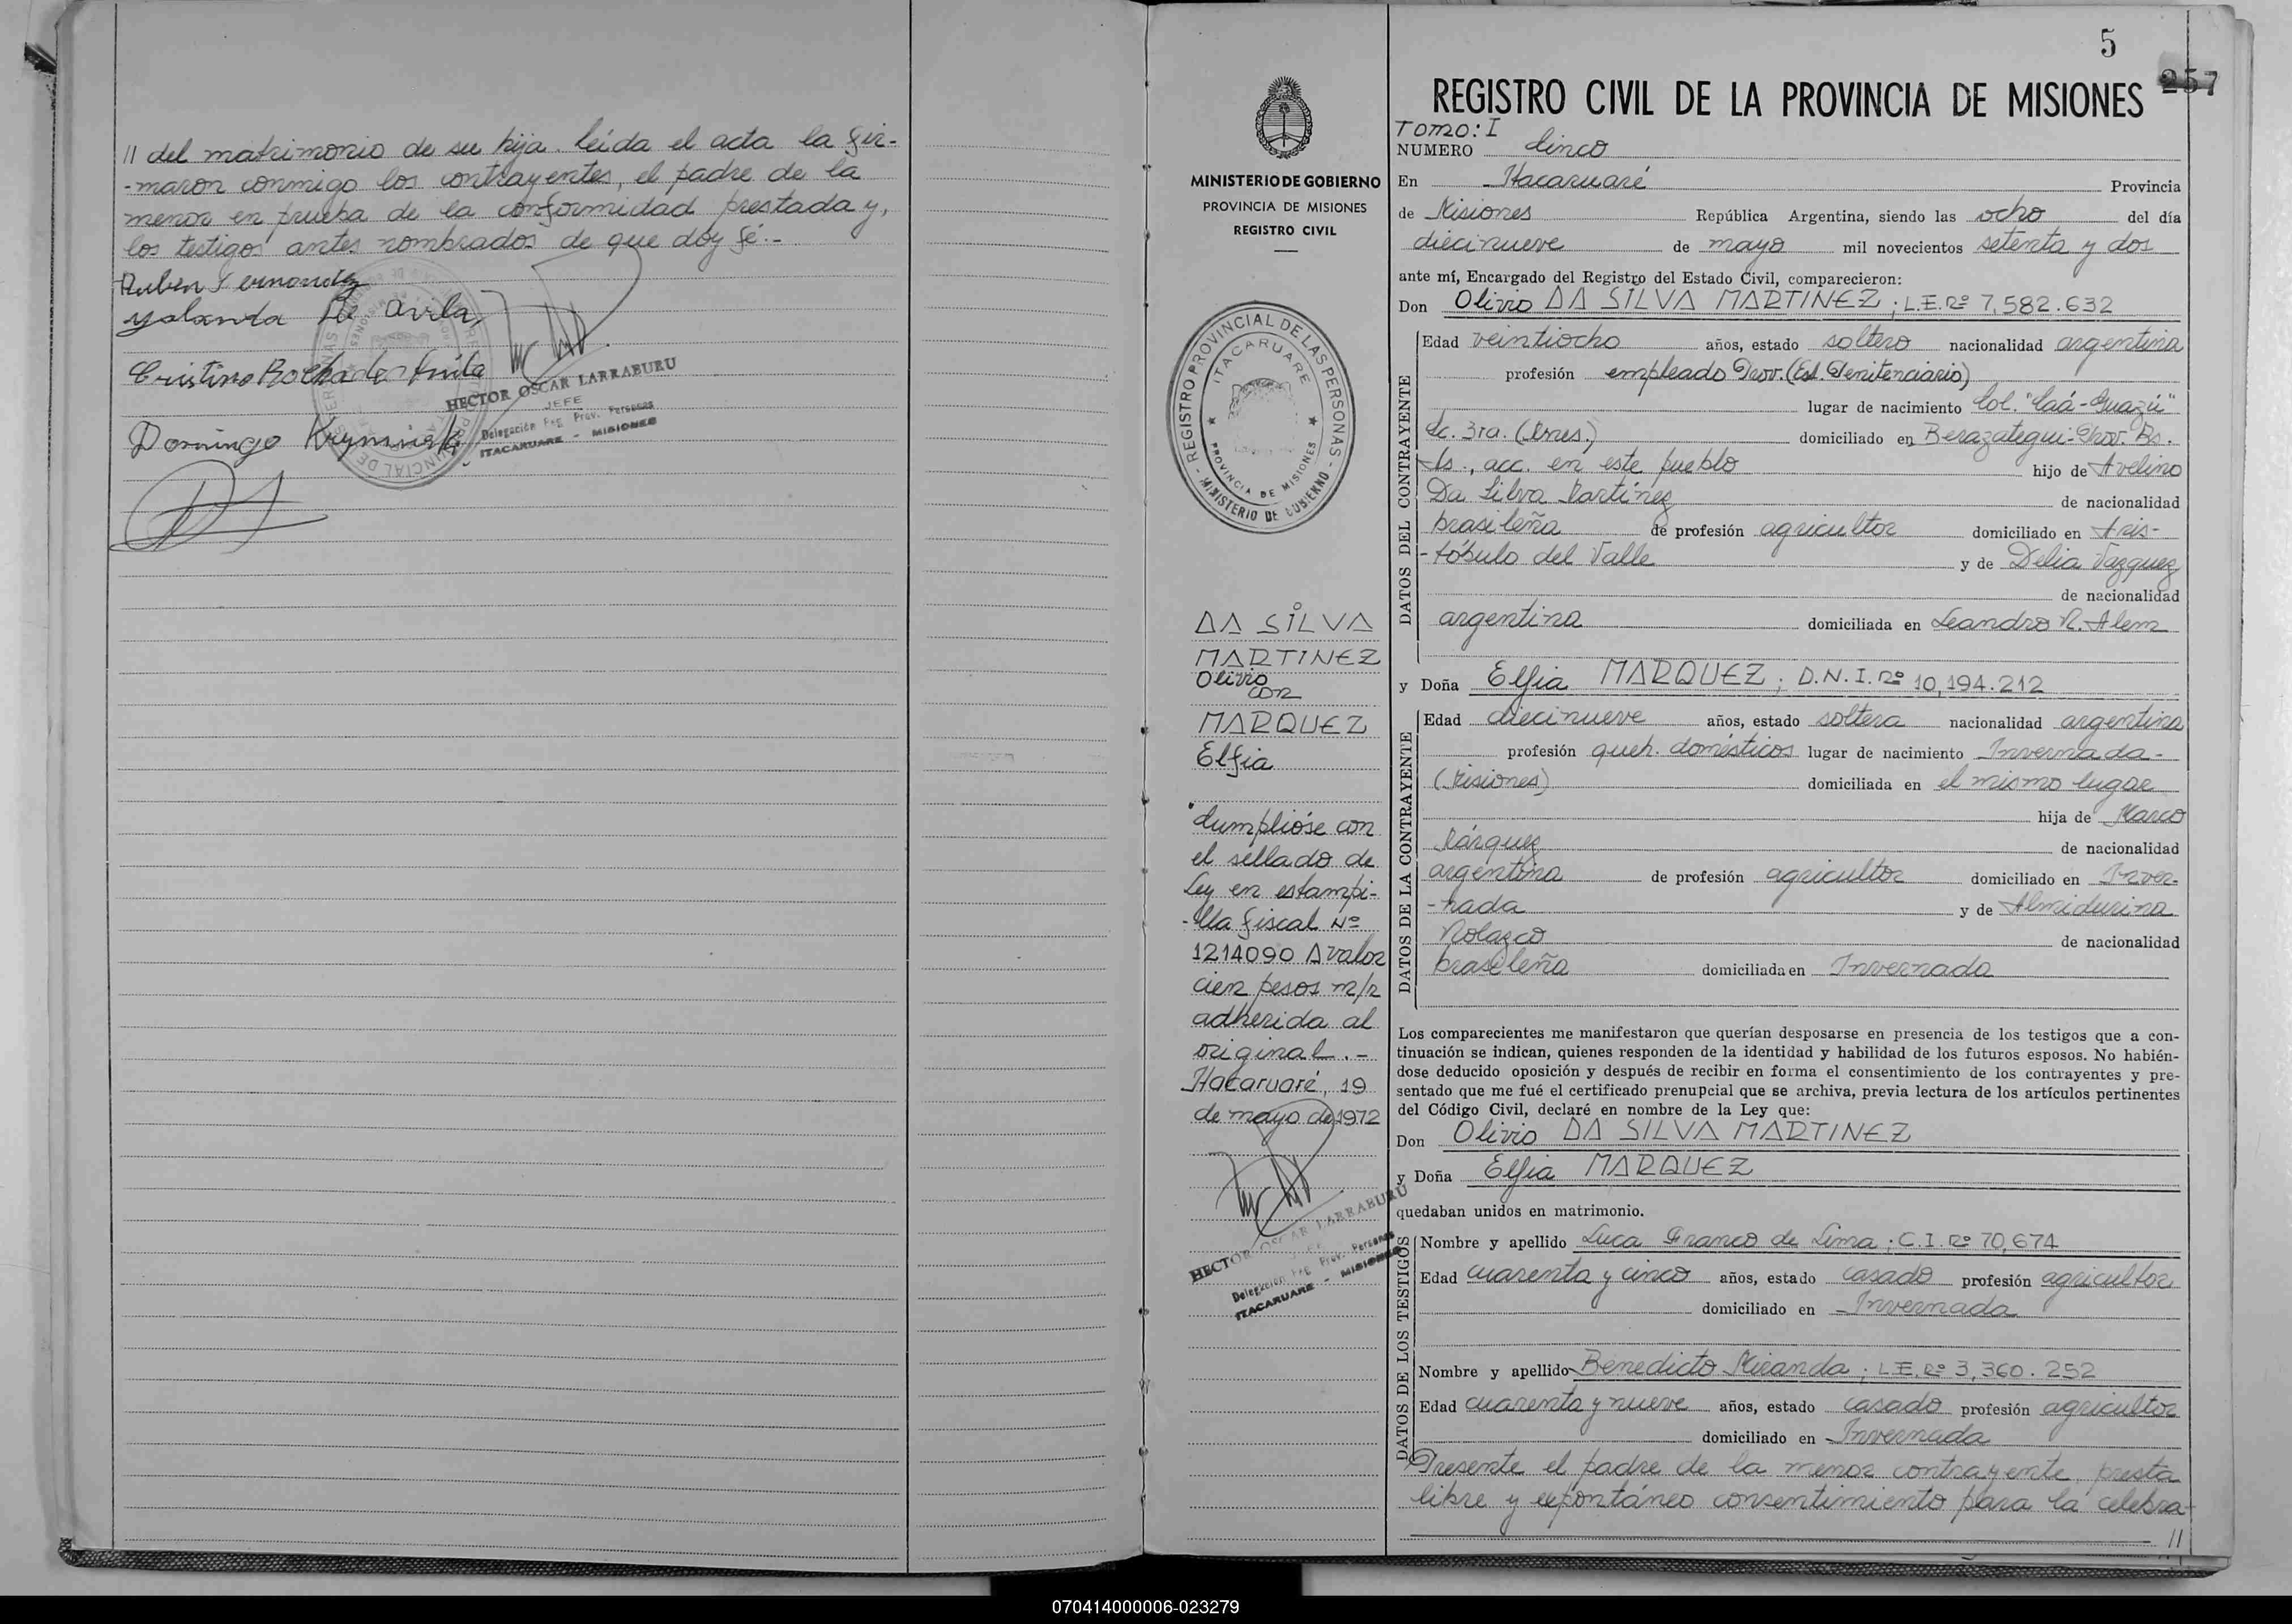 // del matrimonio de su hija. leída el acta la fir-
-maron conmigo los contrayentes, el padre de la
menor en prueba de la conformidad prestada y,
los testigos antes nombrados de que doy fé.-
Ruben Fernandez
Yolanda R. de Avila
Cristino Rocha de Avila
Domingo
HECTOR OSCAR LARRABURU
JEFE
Delegación Reg. Prov. Personas
ITACARUARE - MISIONES
MINISTERIO DE GOBIERNO
PROVINCIA DE MISIONES
REGISTRO CIVIL
REGISTRO PROVINCIAL DE LAS PERSONAS
ITACARUARE
PROVINCIA DE MISIONES
MINISTERIO DE GOBIERNO
DA SILVA
MARTINEZ
Olivio
con
MARQUEZ
Elfia
Cumplióse con
el sellado de
Ley en estampi-
-lla fiscal Nº
1214090 A valor
cien pesos m/n
adherida al
original.-
Itacaruaré, 19
de mayo de 1972
HECTOR OSCAR LARRABURU
JEFE
Delegación Reg. Prov. Personas
ITACARUARE - MISIONES
5
257
REGISTRO CIVIL DE LA PROVINCIA DE MISIONES
TOMO: I
NUMERO Cinco
En Itacaruaré Provincia
de Misiones República Argentina, siendo las ocho del día
diecinueve de mayo mil novecientos setenta y dos
ante mí, Encargado del Registro del Estado Civil, comparecieron:
Don Olivio DA SILVA MARTINEZ; L.E.Nº 7,582.632
DATOS DEL CONTRAYENTE
Edad veintiocho años, estado soltero nacionalidad argentina
profesión empleado Prov. (Est. Penitenciario)
lugar de nacimiento Col. "Caá-Guazú"
Sc. 3ra. (Mnes.) domiciliado en Berazategui-Prov. Bs.
As., acc. en este pueblo hijo de Avelino
Da Silva Martínez de nacionalidad
brasileña de profesión agricultor domiciliado en Aris-
-tóbulo del Valle y de Delia Vazquez
de nacionalidad
argentina domiciliada en Leandro N. Alem
y Doña Elfia MARQUEZ; D.N.I.Nº 10,194.212
DATOS DE LA CONTRAYENTE
Edad diecinueve años, estado soltera nacionalidad argentina
profesión queh. domésticos lugar de nacimiento Invernada-
(Misiones) domiciliada en el mismo lugar
hija de Marco
Márquez de nacionalidad
argentina de profesión agricultor domiciliado en Inver-
-nada y de Almidurina
Nolazco de nacionalidad
brasileña domiciliada en Invernada
Los comparecientes me manifestaron que querían desposarse en presencia de los testigos que a con-
tinuación se indican, quienes responden de la identidad y habilidad de los futuros esposos. No habién-
dose deducido oposición y después de recibir en forma el consentimiento de los contrayentes y pre-
sentado que me fué el certificado prenupcial que se archiva, previa lectura de los artículos pertinentes
del Código Civil, declaré en nombre de la Ley que:
Don Olivio DA SILVA MARTINEZ
y Doña Elfia MARQUEZ
quedaban unidos en matrimonio.
DATOS DE LOS TESTIGOS
Nombre y apellido Luca Franco de Lima; C.I.Nº 70,674
Edad cuarenta y cinco años, estado casado profesión agricultor
domiciliado en Invernada
Nombre y apellido Benedicto Miranda; L.E.Nº 3,360.252
Edad cuarenta y nueve años, estado casado profesión agricultor
domiciliado en Invernada
Presente el padre de la menor contrayente, presta
libre y expontáneo consentimiento para la celebra-
//
070414000006-023279